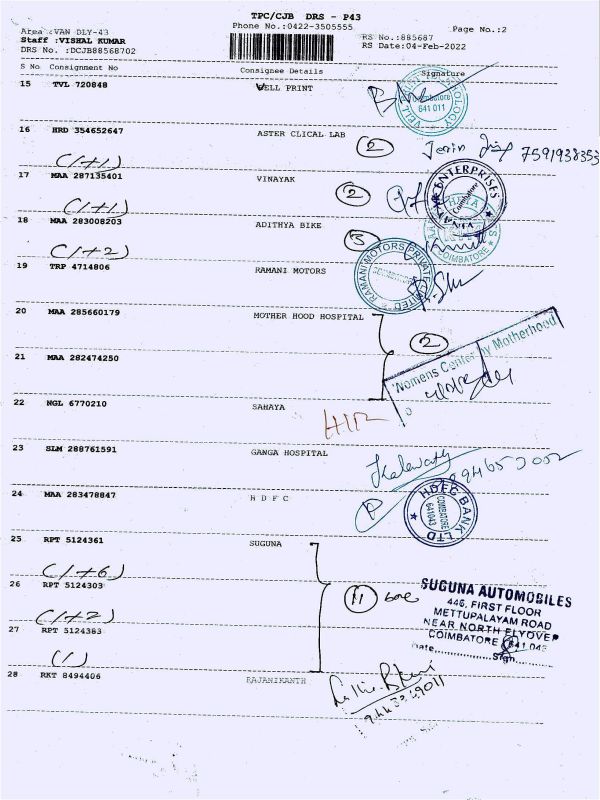 TPC/CJB DRS - P43
Phone No.:0422-3505555
Page No.:2
Area :VAN DLY-43
Staff :VISHAL KUMAR
DRS No. :DCJB88568702
RS No.:885687
RS Date:04-Feb-2022
S No Consignment No Consignee Details Signature
15 TVL 720848 WELL PRINT
641 011
16 HRD 354652647 ASTER CLICAL LAB
2 Jerin 7591938353
(1+1)
17 MAA 287135401 VINAYAK
2
ENTERPRISES
Coimbatore
(1+1)
18 MAA 283008203 ADITHYA BIKE
3
COIMBATORE
(1+2)
19 TRP 4714806 RAMANI MOTORS
RAMANI MOTORS PRIVATE LIMITED
COIMBATORE
20 MAA 285660179 MOTHER HOOD HOSPITAL
2
Womens Center by Motherhood
21 MAA 282474250
22 NGL 6770210 SAHAYA
23 SLM 288761591 GANGA HOSPITAL
24 MAA 283478847 H D F C
HDFC BANK LTD
COIMBATORE
641043
25 RPT 5124361 SUGUNA
(1+6)
26 RPT 5124303
11
(1+2)
27 RPT 5124383
(1)
SUGUNA AUTOMOBILES
446, FIRST FLOOR
METTUPALAYAM ROAD
NEAR NORTH FLYOVER
COIMBATORE 641 043
Date................Sign............
28 RKT 8494406 RAJANIKANTH